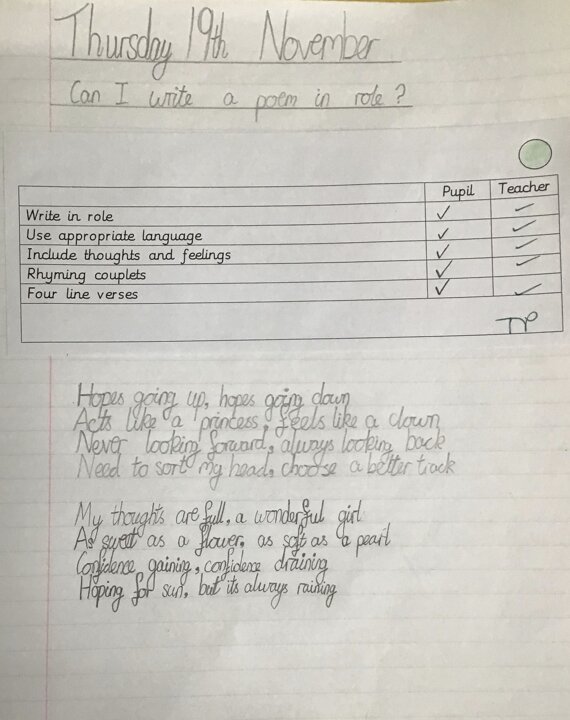 Thursday 19th November
Can I write a poem in role?
Pupil Teacher
Write in role ✓ ✓
Use appropriate language ✓ ✓
Include thoughts and feelings ✓ ✓
Rhyming couplets ✓ ✓
Four line verses ✓ ✓
TP
Hopes going up, hopes going down
Acts like a princess, feels like a clown
Never looking forward, always looking back
Need to sort my head, choose a better track
My thoughts are full, a wonderful girl
As sweet as a flower, as soft as a pearl
Confidence gaining, confidence draining
Hoping for sun, but its always raining